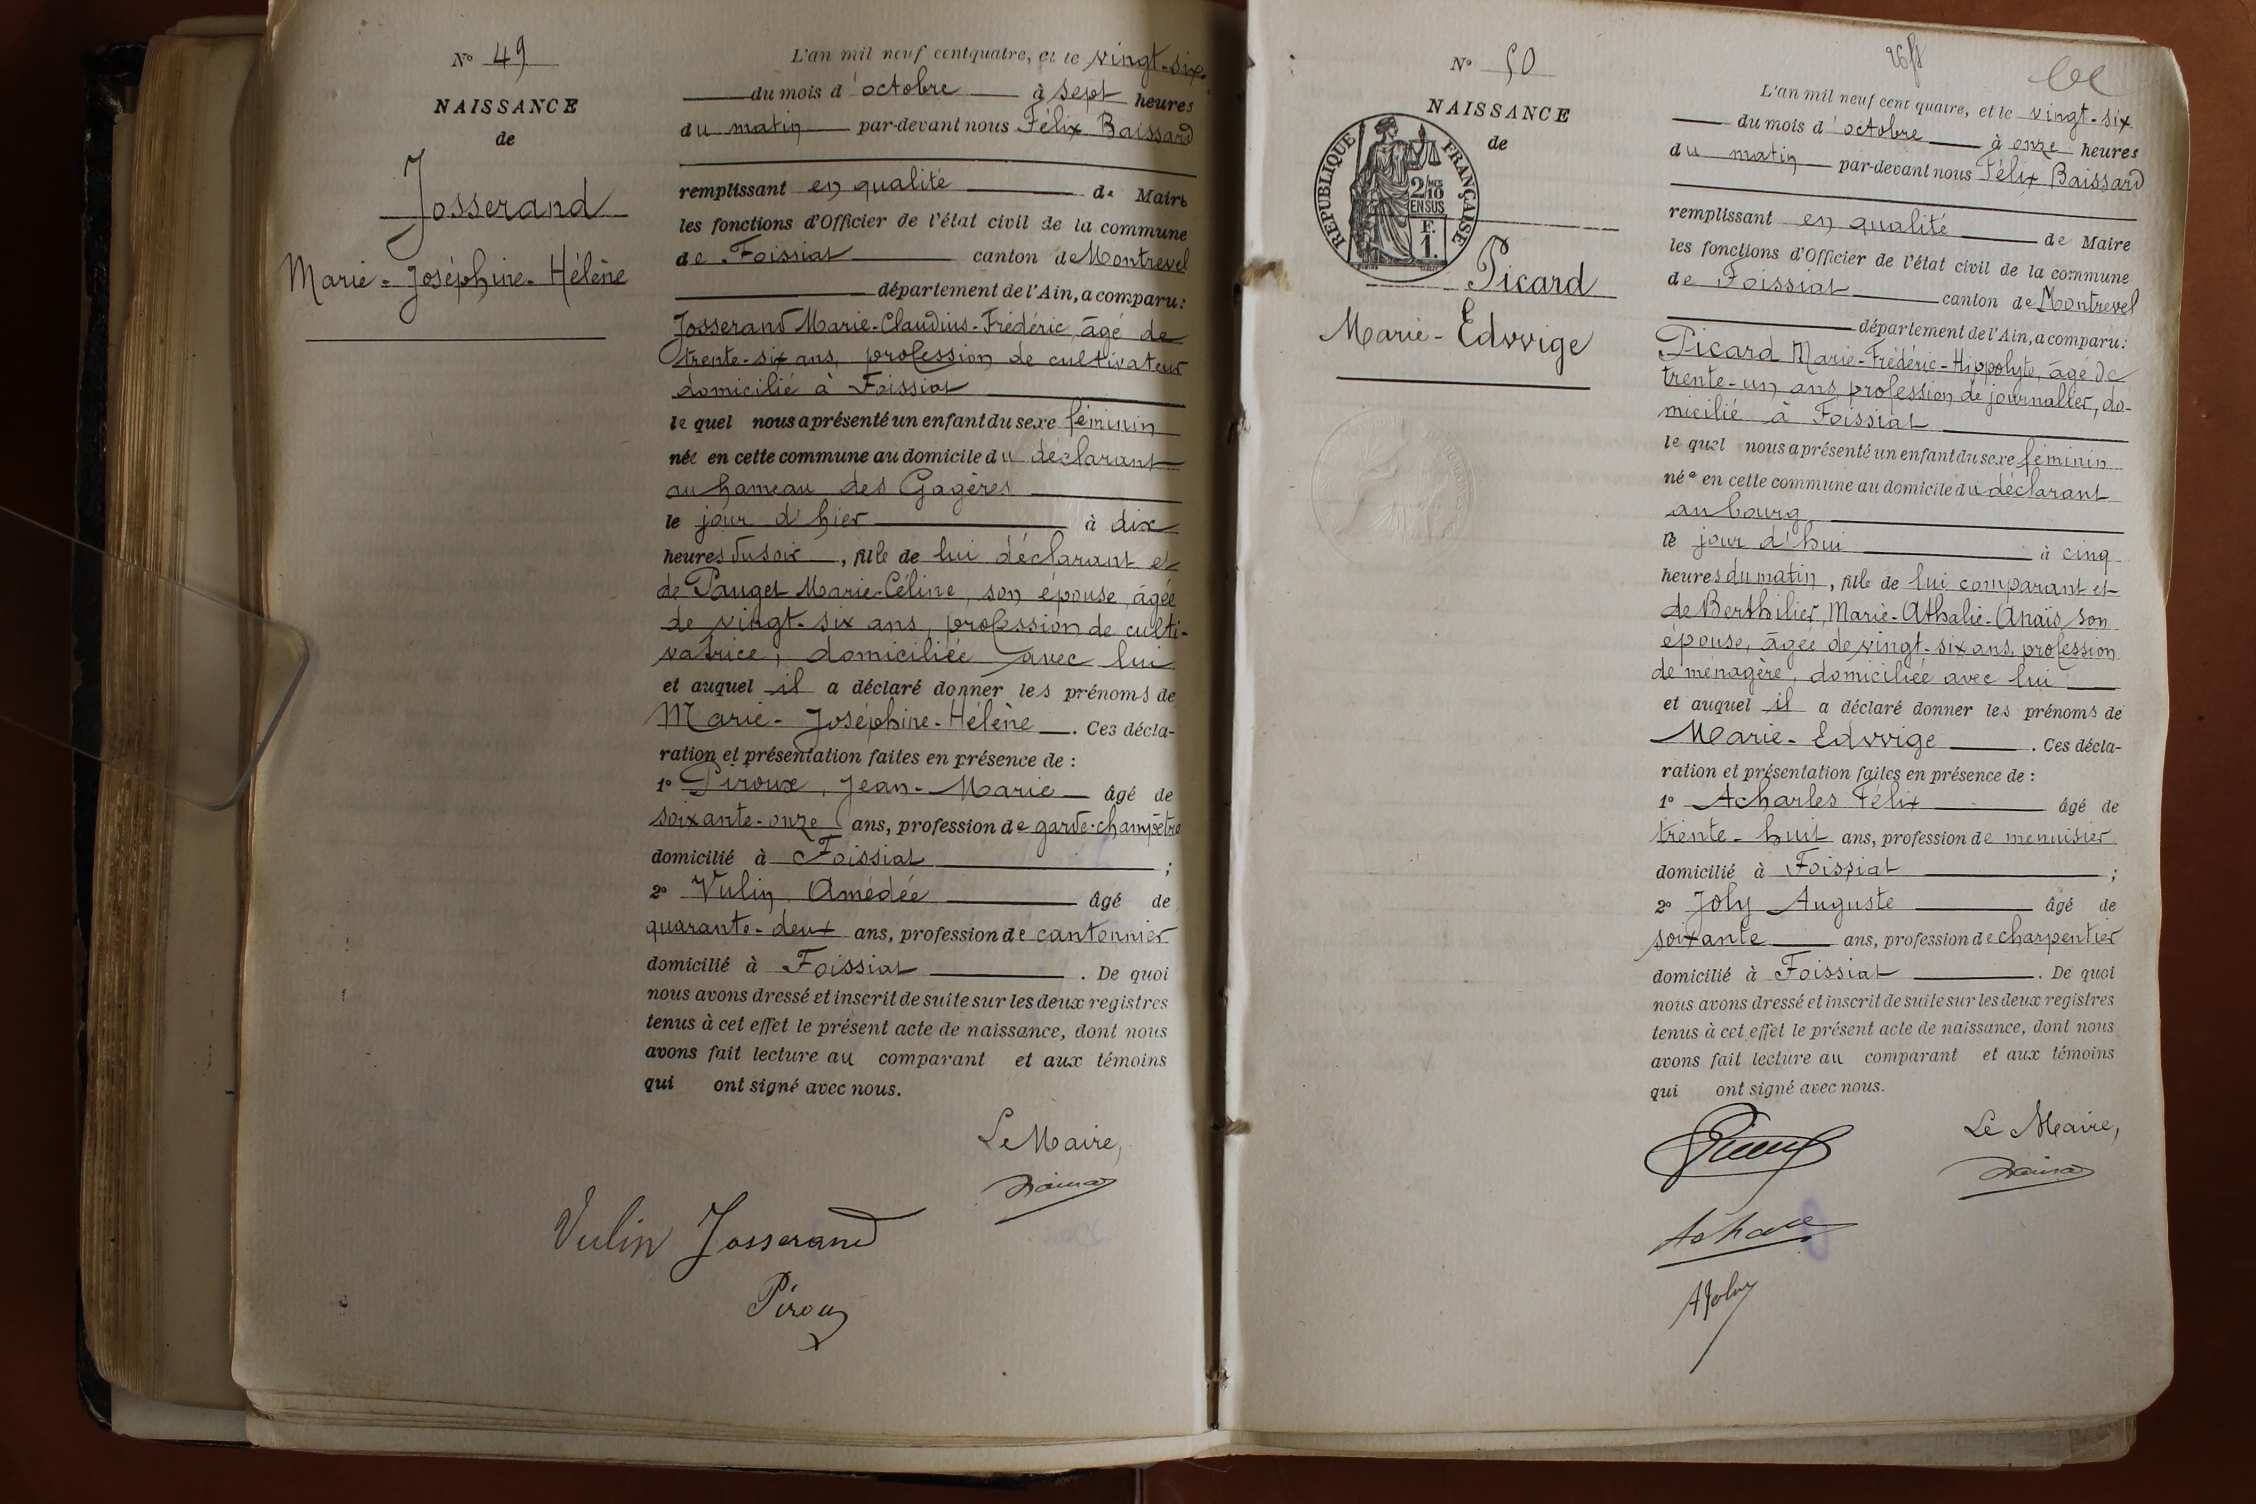 N° 49
NAISSANCE
de
Josserand
Marie-Joséphine-Hélène
L'an mil neuf cent quatre, et le vingt-six
du mois d'octobre à sept heures
du matin par-devant nous Félix Baissard
remplissant en qualité de Maire
les fonctions d'Officier de l'état civil de la commune
de Foissiat canton de Montrevel
département de l'Ain, a comparu:
Josserand Marie-Claudius-Frédéric, âgé de
trente-six ans, profession de cultivateur
domicilié à Foissiat
le quel nous a présenté un enfant du sexe féminin
née en cette commune au domicile du déclarant
au hameau des Gagères
le jour d'hier à dix
heures du soir, fille de lui déclarant et
de Pauget Marie-Céline, son épouse, âgée
de vingt-six ans, profession de culti-
vatrice, domiciliée avec lui
et auquel il a déclaré donner les prénoms de
Marie-Joséphine-Hélène. Ces décla-
ration et présentation faites en présence de :
1° Piroux, Jean-Marie âgé de
soixante-onze ans, profession de garde-champêtre
domicilié à Foissiat ;
2° Vulin Amédée âgé de
quarante-deux ans, profession de cantonnier
domicilié à Foissiat. De quoi
nous avons dressé et inscrit de suite sur les deux registres
tenus à cet effet le présent acte de naissance, dont nous
avons fait lecture au comparant et aux témoins
qui ont signé avec nous.
Le Maire,
Vulin Josserand
Piroux
N° 50
NAISSANCE
de
RÉPUBLIQUE FRANÇAISE
2/10 EN SUS
F. 1.
Picard
Marie-Edwige
L'an mil neuf cent quatre, et le vingt-six
du mois d'octobre à onze heures
du matin par-devant nous Félix Baissard
remplissant en qualité de Maire
les fonctions d'Officier de l'état civil de la commune
de Foissiat canton de Montrevel
département de l'Ain, a comparu:
Picard Marie-Frédéric-Hippolyte, âgé de
trente-un ans, profession de journalier, do-
micilié à Foissiat
le quel nous a présenté un enfant du sexe féminin
née en cette commune au domicile du déclarant
au bourg
le jour d'hui à cinq
heures du matin, fille de lui comparant et
de Berthilier, Marie-Athalie-Anaïs son
épouse, âgée de vingt-six ans, profession
de ménagère, domiciliée avec lui
et auquel il a déclaré donner les prénoms de
Marie-Edwige. Ces décla-
ration et présentation faites en présence de :
1° Acharles Félix âgé de
trente-huit ans, profession de menuisier
domicilié à Foissiat ;
2° Joly Auguste âgé de
soixante ans, profession de charpentier
domicilié à Foissiat. De quoi
nous avons dressé et inscrit de suite sur les deux registres
tenus à cet effet le présent acte de naissance, dont nous
avons fait lecture au comparant et aux témoins
qui ont signé avec nous.
Le Maire,
A Joly